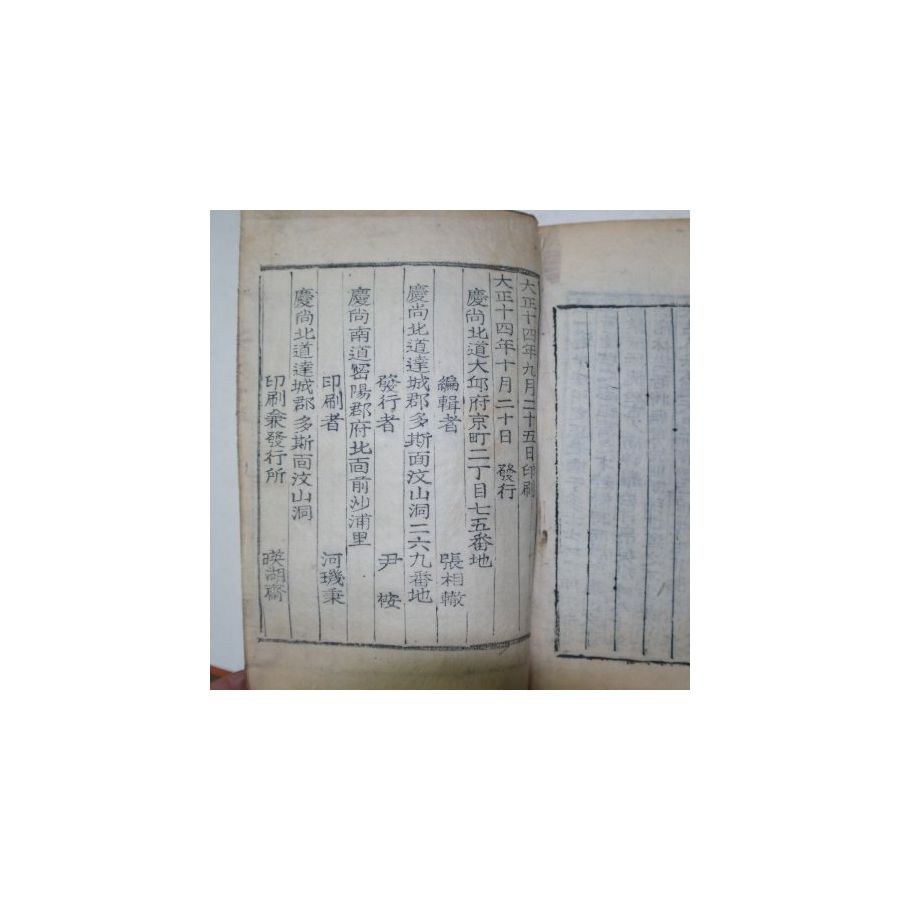 大正十四年九月二十五日印刷
大正十四年十月二十日 發行
慶尙北道大邱府京町二丁目七五番地
編輯者 張相轍
慶尙北道達城郡多斯面汶山洞二六九番地
發行者 尹
慶尙南道密陽郡府北面前沙浦里
印刷者 河璣秉
慶尙北道達城郡多斯面汶山洞
印刷兼發行所 暎湖齋